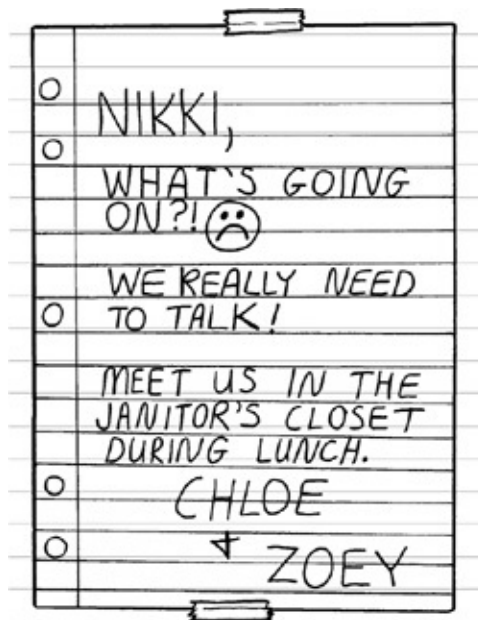 NIKKI,
WHAT'S GOING
ON?!
WE REALLY NEED
TO TALK!
MEET US IN THE
JANITOR'S CLOSET
DURING LUNCH.
CHLOE
+
ZOEY